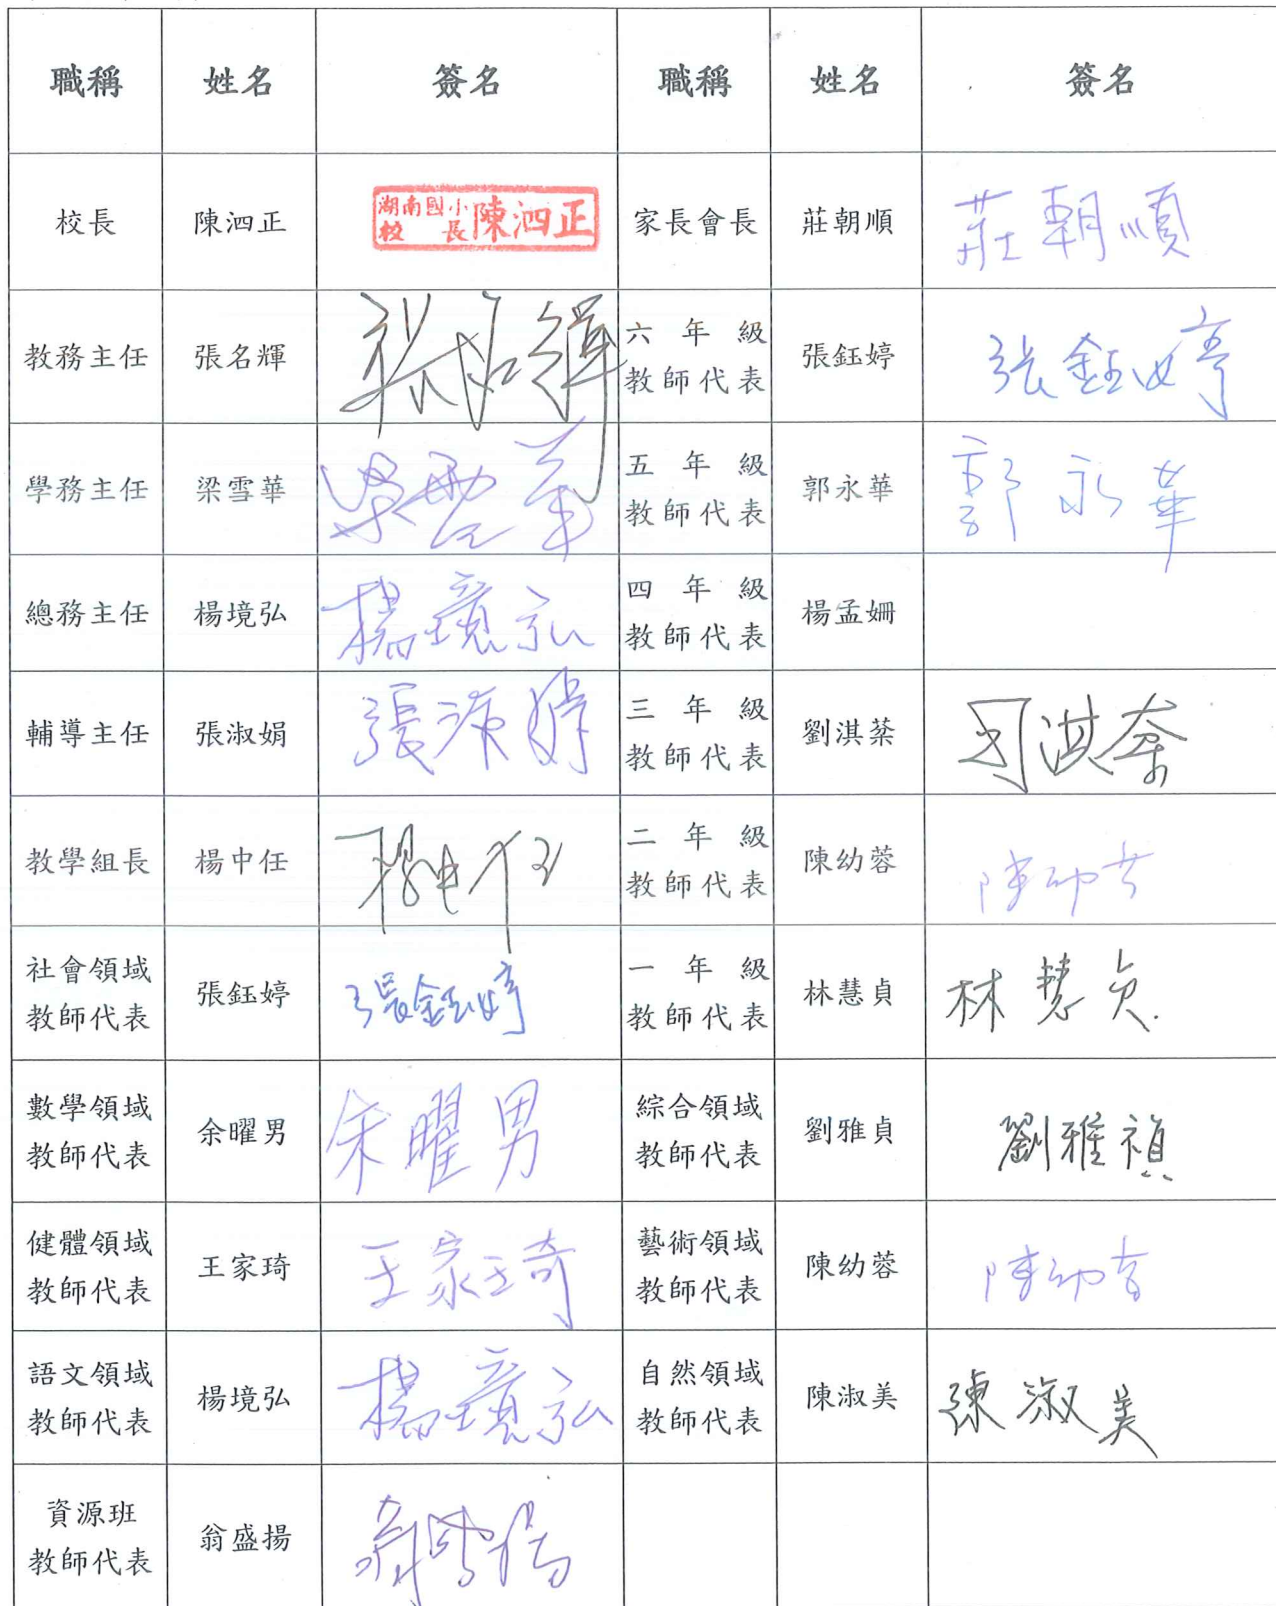 職稱 姓名 簽名 職稱 姓名 簽名
校長 陳泗正 湖南國小 校長 陳泗正 家長會長 莊朝順 莊朝順
教務主任 張名輝 張名輝 六年級 教師代表 張鈺婷 張鈺婷
學務主任 梁雪華 梁雪華 五年級 教師代表 郭永華 郭永華
總務主任 楊境弘 楊境弘 四年級 教師代表 楊孟姍
輔導主任 張淑娟 張淑娟 三年級 教師代表 劉淇棻 刘淇棻
教學組長 楊中任 楊中任 二年級 教師代表 陳幼蓉 陳幼蓉
社會領域 教師代表 張鈺婷 張鈺婷 一年級 教師代表 林慧貞 林慧貞
數學領域 教師代表 余曜男 余曜男 綜合領域 教師代表 劉雅貞 劉雅禎
健體領域 教師代表 王家琦 王家琦 藝術領域 教師代表 陳幼蓉 陳幼蓉
語文領域 教師代表 楊境弘 楊境弘 自然領域 教師代表 陳淑美 陳淑美
資源班 教師代表 翁盛揚 翁盛揚